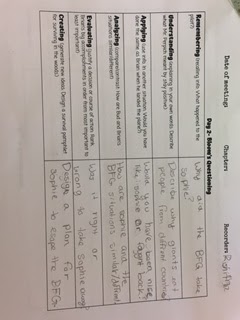 Date of meeting: Chapters Recorders
Day 2- Novel's Questioning
Remembering (recalling info. What happened to the pilot?)
Why did the BFG take Sophie?
Understanding (explaining in your own words. Describe what Mr. Perpich means.)
Describe why giants eat people from different countries
Applying (use info. in another situation. Would you have done the same as Brian when he landed the plane?)
Would you have been nice like sophie or fight back?
Analyzing (compare/contrast. How are Bud and Brian's situations similar/different?)
How are sophie and the BFG situations similar/
Evaluating (justify a decision or course of action. Rank Brian's big accomplishments in order from most important to least important)
Was it right or wrong to take Sophie away
Creating (generate new ideas. Design a survival pamphlet for surviving in the woods)
Design a plan for Sophie to escape the BFG